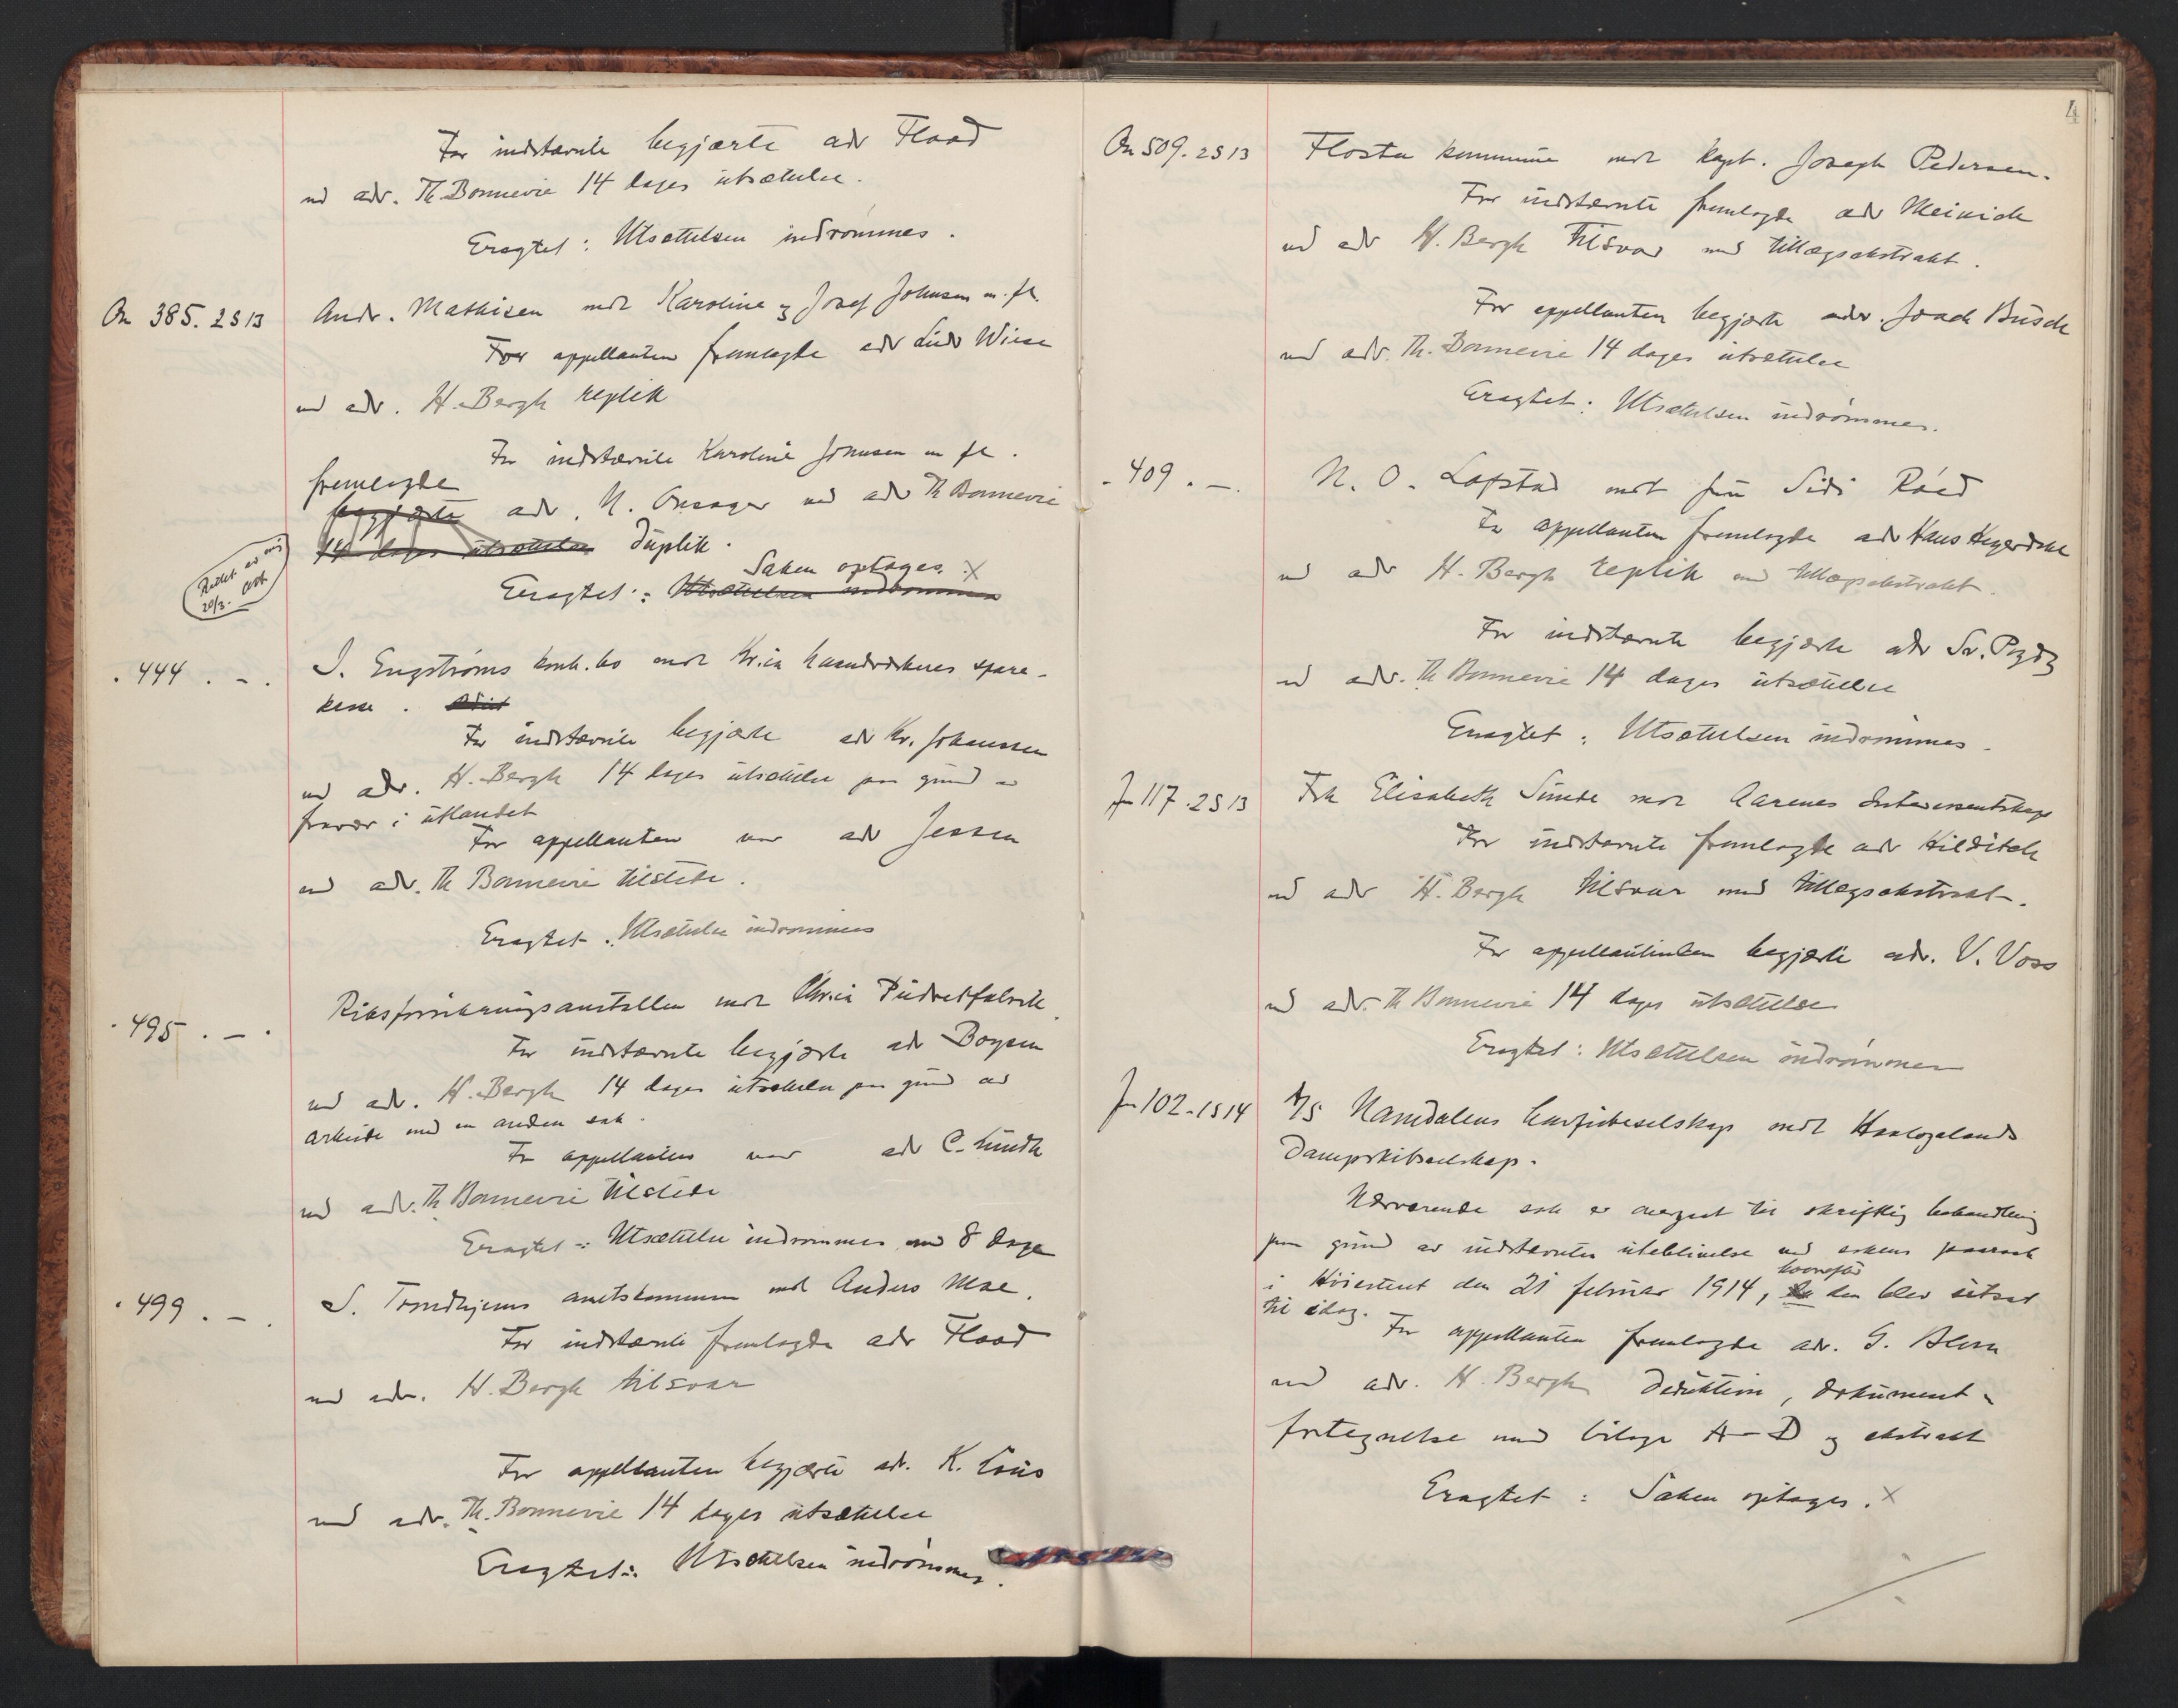 For indstævnte begjærte adv Flood
ved adv. Th. Bonnevie 14 dages utsættelse.
Eragtet: Utsættelsen indrømmes.
On 385. 2S 13 Andr. Mathisen mot Karoline og Josef Johnsen m. fl.
For appellanten fremlagde adv Ludv Wiese
ved adv. H. Bergh replik
For indstævnte Karoline Johnsen m fl.
fremlagde
begjærte adv. N. Onsager ved adv Th Bonnevie
14 dages utsættelse duplik.
Rettet av mig
20/3.
Saken optages. X
Eragtet: Utsættelsen indrømmes
. 444 . - . J. Engstrøms konk.bo mot Kr.ia haandverkeres spare-
kasse.
For indstævnte begjærte adv Kr. Johanssen
ved adv. H. Bergh 14 dages utsættelse paa grund av
fravær i utlandet
For appellanten var adv Jessen
ved adv. Th Bonnevie tilstede.
Eragtet: Utsættelse indrømmes
. 495 . - . Riksforsikringsanstalten mot Chr.ia Pudretfabrik.
For indstævnte begjærte adv Boysen
ved adv. H. Bergh 14 dages utsættelse paa grund av
arbeide med en anden sak.
For appellanten var adv C. Lundh
ved adv. Th Bonnevie tilstede
Eragtet: Utsættelse indrømmes med 8 dage
. 499 . - . S. Trondhjems amtskommune mot Anders Moe.
For indstævnte fremlagde adv Flood
ved adv. H. Bergh tilsvar
For appellanten begjærte adv. K. Lous
ved adv. Th. Bonnevie 14 dages utsættelse
Eragtet: Utsættelsen indrømmes.
4
On 509. 2S 13 Flosta kommune mot kapt. Joseph Pedersen.
For indstævnte fremlagde adv Meinich
ved adv H. Bergh Tilsvar med tillægsekstrakt.
For appellanten begjærte adv. Joach Busch
ved adv. Th. Bonnevie 14 dages utsættelse
Eragtet: Utsættelsen indrømmes.
- 409 . - . N. O. Lofstad mot fru Sidi Róed
For appellanten fremlagde adv Hans Heyerdahl
ved adv H. Bergh replik med tillægsekstrakt.
For indstævnte begjærte adv Sv.
ved adv. Th Bonnevie 14 dages utsættelse
Eragtet: Utsættelsen indrømmes.
Jn 117. 2S 13 Frk Elisabeth Sunde mot Aarenes Interessentskap
For indstævnte fremlagde adv Hilditch
ved adv H. Bergh tilsvar med tillægsekstrakt.
For appellantinden begjærte adv. V. Voss
ved adv. Th Bonnevie 14 dages utsættelse
Eragtet: Utsættelsen indrømmes
Jn 102. 1S 14 A/S Namdalens havfiskeselskap mot Haalogalands
Dampskibsselskap.
Nærværende sak er overgaat til skriftlig behandling
paa grund av indstævntes uteblivelse ved sakens paarop
i Høiesteret den 21 februar 1914, hvorefter den blev utsat
til idag.
For appellanten fremlagde adv. G. Blom
ved adv. H. Bergh deduktion, dokument-
fortegnelse med bilage A-D og ekstrakt
Eragtet: Saken optages. X